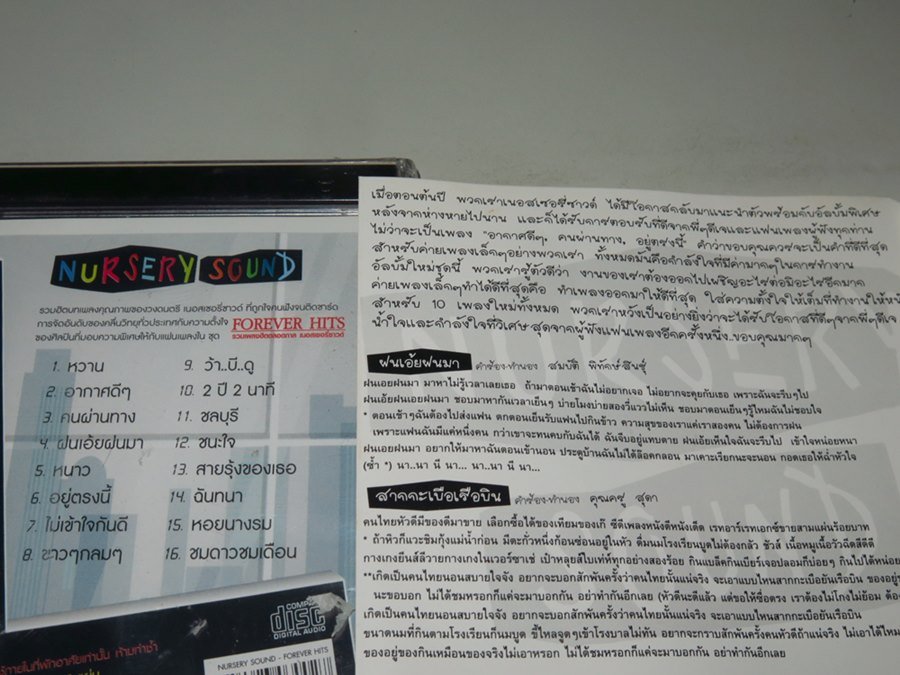 NURSERY SOUND
รวมฮิตบทเพลงคุณภาพของวงดนตรี เนอสเซอรี่ซาวด์ ที่ถูกใจคนฟังจนติดชาร์ต
การจัดอันดับของคลื่นวิทยุทั่วประเทศกับความตั้งใจ FOREVER HITS
ของศิลปินที่มอบความพิเศษให้กับแฟนเพลงใน ชุด รวมเพลงฮิตตลอดกาล เนอสเซอรี่ซาวด์
1. หวาน
2. อากาศดีๆ
3. คนผ่านทาง
4. ฝนเอ้ยฝนมา
5. หนาว
6. อยู่ตรงนี้
7. ไม่เข้าใจกันดี
8. ขาวๆกลมๆ
9. ว้า..บี..ดู
10. 2 ปี 2 นาที
11. ชลบุรี
12. ชนะใจ
13. สายรุ้งของเธอ
14. ฉันทนา
15. หอยนางรม
16. ชมดาวชมเดือน
COMPACT
disc
DIGITAL AUDIO
ใช้ภายในที่พักอาศัยเท่านั้น ห้ามทำซ้ำ
NURSERY SOUND - FOREVER HITS
เมื่อตอนต้นปี พวกเราเนอสเซอรี่ซาวด์ ได้มีโอกาสกลับมาแนะนำตัวพร้อมกับอัลบั้มพิเศษ
หลังจากห่างหายไปนาน และก็ได้รับการตอบรับที่ดีจากพี่ๆดีเจและแฟนเพลงผู้ฟังทุกท่าน
ไม่ว่าจะเป็นเพลง "อากาศดีๆ, คนผ่านทาง, อยู่ตรงนี้" คำว่าขอบคุณควรจะเป็นคำที่ดีที่สุด
สำหรับค่ายเพลงเล็กๆอย่างพวกเรา ทั้งหมดมันคือกำลังใจที่มีค่ามากๆในการทำงาน
อัลบั้มใหม่ชุดนี้ พวกเรารู้ตัวดีว่า งานของเราต้องออกไปเผชิญอะไรต่อมิอะไรอีกมาก
ค่ายเพลงเล็กๆทำได้ดีที่สุดคือ ทำเพลงออกมาให้ดีที่สุด ใส่ความตั้งใจให้เต็มที่ทำงานให้หนั
สำหรับ 10 เพลงใหม่ทั้งหมด พวกเราหวังเป็นอย่างยิ่งว่าจะได้รับโอกาสที่ดีๆจากพี่ๆดีเจ
น้ำใจและกำลังใจที่วิเศษสุดจากผู้ฟังแฟนเพลงอีกครั้งหนึ่ง..ขอบคุณมากๆ
ฝนเอ้ยฝนมา คำร้อง-ทำนอง สมบัติ พิทักษ์สินธุ์
ฝนเอ้ยฝนมา มาหาไม่รู้เวลาเลยเธอ ถ้ามาตอนเช้าฉันไม่อยากเจอ ไม่อยากจะคุยกับเธอ เพราะฉันจะรีบไป
ฝนเอ้ยฝนเอยฝนมา ชอบมาหากันเวลาเย็นๆ บ่ายโมงบ่ายสองวี่แววไม่เห็น ชอบมาตอนเย็นๆรู้ไหมฉันไม่ชอบใจ
* ตอนเช้าๆฉันต้องไปส่งแฟน ตกตอนเย็นรับแฟนไปกินข้าว ความสุขของเราแค่เราสองคน ไม่ต้องการฝน
เพราะแฟนฉันมีแค่หนึ่งคน กว่าเขาจะทนคบกับฉันได้ ฉันจีบอยู่แทบตาย ฝนเอ้ยเห็นใจฉันจะรีบไป เข้าใจหน่อยหนา
ฝนเอ้ยฝนมา อยากให้มาหาฉันตอนเข้านอน ประตูบ้านฉันไม่ได้ล็อคกลอน มาเคาะเรียกนะจะนอน กอดเธอให้ฉ่ำหัวใจ
(ซ้ำ *) นา..นา นี นา... นา..นา นี นา...
สากกะเบือเรือบิน คำร้อง-ทำนอง คุณครู สุดา
คนไทยหัวดีมีของดีมาขาย เลือกซื้อได้ของเทียมของเก๊ ซีดีเพลงหนังดีหนังเด็ด เรทอาร์เรทเอกซ์ขายสามแผ่นร้อยบาท
* ถ้าหิวก็แวะชิมกุ้งแม่น้ำก่อน มีตะกั่วหนึ่งก้อนซ่อนอยู่ในหัว ดื่มนมโรงเรียนบูดไม่ต้องกลัว ชัวส์ เนื้อหมูเนื้อวัวฉีดสีดีดี
กางเกงยีนส์ลีวายกางเกงในเวอร์ซาเช่ เป้าหลุยส์ใบเท่ห์ทุกอย่างสองร้อย กินแบล็คกินเบียร์เจอปลอมก็บ่อยๆ กินไปได้หน่อย
**เกิดเป็นคนไทยนอนสบายใจจัง อยากจะบอกสักพันครั้งว่าคนไทยนั้นแน่จริง จะเอาแบบไหนสากกะเบือยันเรือบิน ของอยู่
นะขอบอก ไม่ได้ชมหรอกก็แค่จะมาบอกกัน อย่าทำกันอีกเลย (หัวดีนะดีแล้ว แต่ขอให้ซื่อตรง เราต้องไม่โกงไม่ย้อม ต้อง
เกิดเป็นคนไทยนอนสบายใจจัง อยากจะบอกสักพันครั้งว่าคนไทยนั้นแน่จริง จะเอาแบบไหนสากกะเบือยันเรือบิน
ขนาดนมที่กินตามโรงเรียนก็นมบูด ขี้ไหลจูดๆเข้าโรงบาลไม่ทัน อยากจะกราบสักพันครั้งคนหัวดีถ้าแน่จริง ไม่เอาได้ไหม
ของอยู่ของกินเหมือนของจริงไม่เอาหรอก ไม่ได้ชมหรอกก็แค่จะมาบอกกัน อย่าทำกันอีกเลย